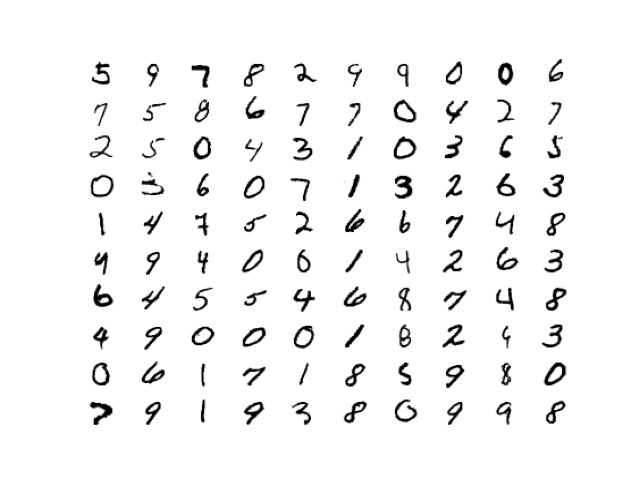 5 9 7 8 2 9 9 0 0 6
7 5 8 6 7 7 0 4 2 7
2 5 0 4 3 1 0 3 6 5
0 3 6 0 7 1 3 2 6 3
1 4 7 5 2 6 6 7 4 8
9 9 4 0 0 1 4 2 6 3
6 4 5 5 4 6 8 7 4 8
4 9 0 0 0 1 8 2 3
0 6 1 7 1 8 5 9 8 0
7 9 1 9 3 8 0 9 9 8